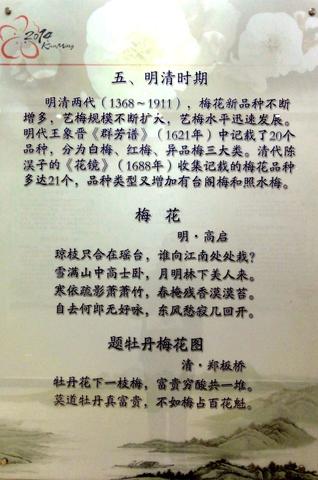 2010
KunMing
五、明清时期
明清两代（1368～1911），梅花新品种不断
增多，艺梅规模不断扩大，艺梅水平迅速发展。
明代王象晋《群芳谱》（1621年）中记载了20个
品种，分为白梅、红梅、异品梅三大类。清代陈
淏子的《花镜》（1688年）收集记载的梅花品种
多达21个，品种类型又增加有台阁梅和照水梅。
梅 花
明·高启
琼枝只合在瑶台，谁向江南处处栽？
雪满山中高士卧，月明林下美人来。
寒依疏影萧萧竹，春掩残香漠漠苔。
自去何郎无好咏，东风愁寂几回开。
题牡丹梅花图
清·郑板桥
牡丹花下一枝梅，富贵穷酸共一堆。
莫道牡丹真富贵，不如梅占百花魁。